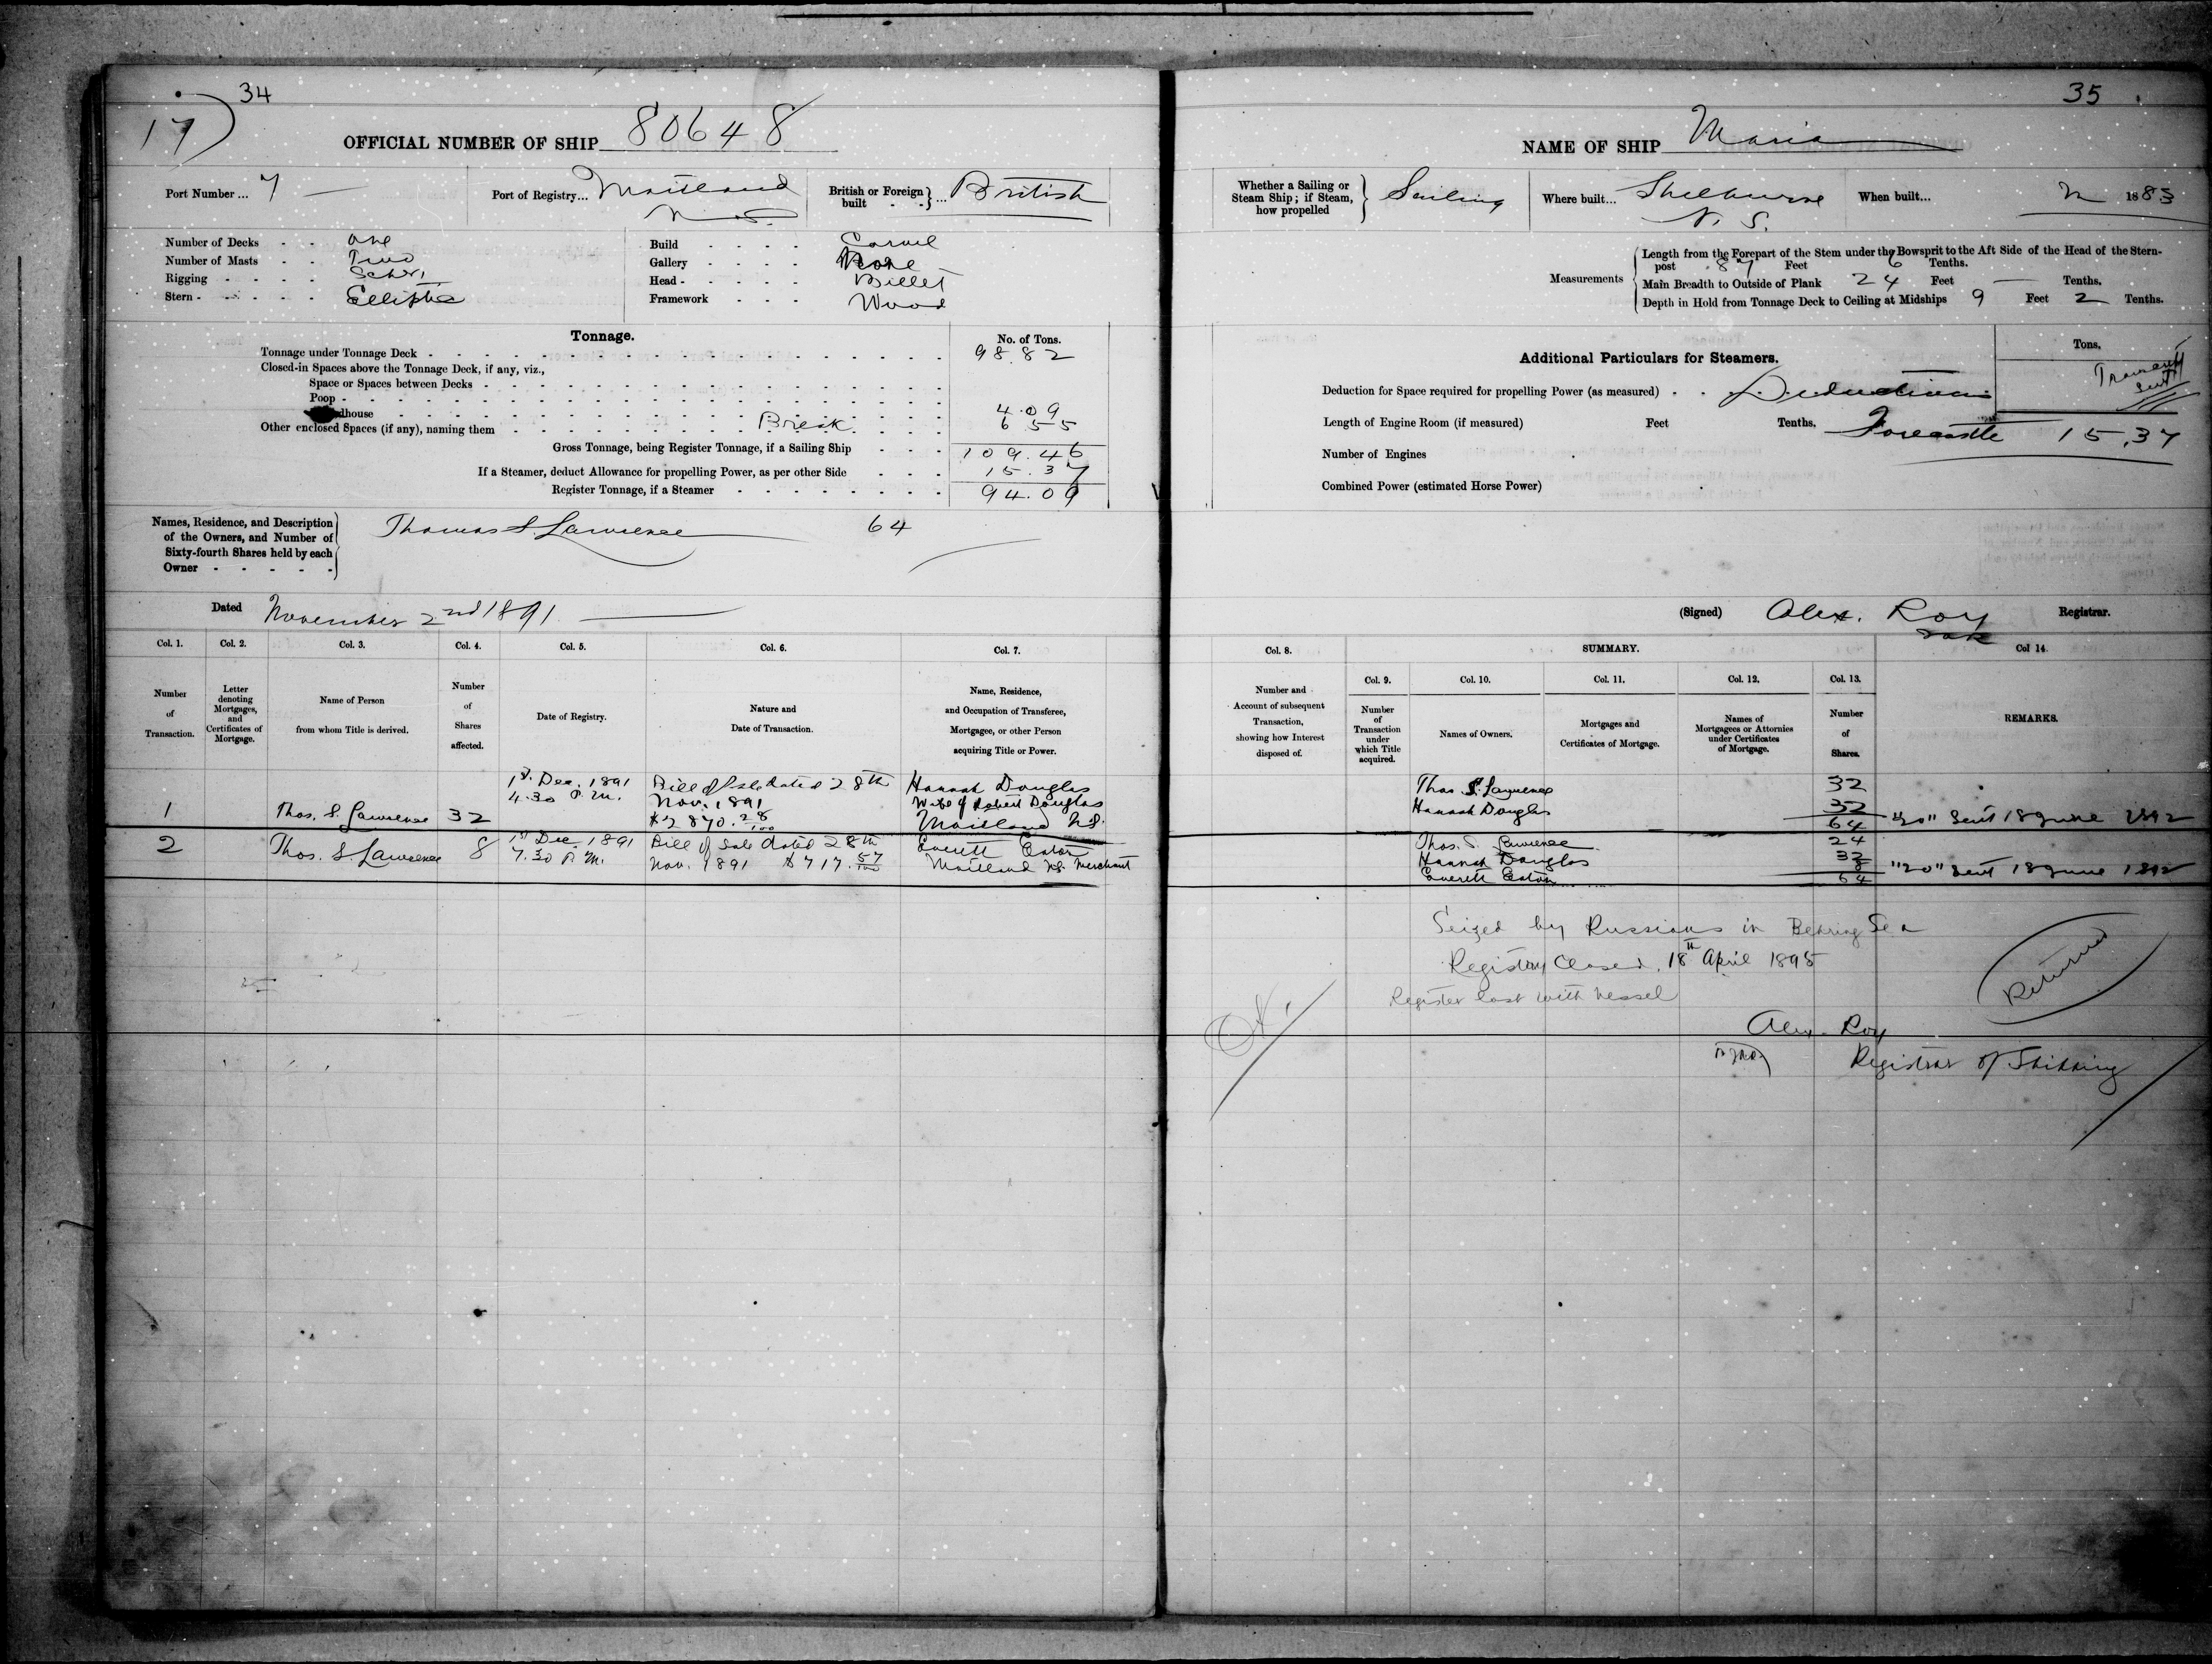 34
17)
OFFICIAL NUMBER OF SHIP 80648
Port Number... 7 —
Port of Registry... Maitland
N.S.
British or Foreign built - -}... British
Number of Decks - - One
Number of Masts - - Two
Rigging - - - - Schr.
Stern - - - - - Elliptic
Build - - - - Carvel
Gallery - - - - None
Head - - - - - Billet
Framework - - - Wood
Tonnage.
No. of Tons.
Tonnage under Tonnage Deck - 98.82
Closed-in Spaces above the Tonnage Deck, if any, viz.,
Space or Spaces between Decks -
Poop -
dhouse 4.09
Other enclosed Spaces (if any), naming them Break 6 55
Gross Tonnage, being Register Tonnage, if a Sailing Ship - - - 109.46
If a Steamer, deduct Allowance for propelling Power, as per other Side - - - 15.37
Register Tonnage, if a Steamer - 94.09
Names, Residence, and Description
of the Owners, and Number of
Sixty-fourth Shares held by each
Owner - - - - -
Thomas S. Lawrence 64
Dated November 2nd 1891
Col. 1. Col. 2. Col. 3. Col. 4. Col. 5. Col. 6. Col. 7.
Number of Transaction.
Letter denoting Mortgages, and Certificates of Mortgage.
Name of Person from whom Title is derived.
Number of Shares affected.
Date of Registry.
Nature and Date of Transaction.
Name, Residence, and Occupation of Transferee, Mortgagee, or other Person acquiring Title or Power.
1st Dec. 1891 Bill of Sale dated 28th Hannah Douglas
4.30 P.M. Nov. 1891 Wife of Robert Douglas
1 Thos. S. Lawrence 32 $2870.28/100 Maitland N.S.
2 Thos. S. Lawrence 8 1st Dec. 1891 Bill of Sale dated 28th Everett Eaton
7.30 P.M. Nov. 1891 $717.57/100 Maitland N.S. Merchant
35
NAME OF SHIP Maria
Whether a Sailing or Steam Ship; if Steam, how propelled } Sailing
Where built... Shelburne
N. S.
When built... in 1883
Measurements
Length from the Forepart of the Stem under the Bowsprit to the Aft Side of the Head of the Stern-
post 87 Feet 6 Tenths.
Main Breadth to Outside of Plank 24 Feet — Tenths.
Depth in Hold from Tonnage Deck to Ceiling at Midships 9 Feet 2 Tenths.
Additional Particulars for Steamers.
Tons.
Deduction for Space required for propelling Power (as measured) - - Deductions
Length of Engine Room (if measured) Feet Tenths. Forecastle 15.37
Number of Engines
Combined Power (estimated Horse Power)
(Signed) Alex. Roy Registrar.
Col. 8. SUMMARY. Col 14.
Col. 9. Col. 10. Col. 11. Col. 12. Col. 13.
Number and Account of subsequent Transaction, showing how Interest disposed of.
Number of Transaction under which Title acquired.
Names of Owners.
Mortgages and Certificates of Mortgage.
Names of Mortgagees or Attornies under Certificates of Mortgage.
Number of Shares.
REMARKS.
Thos S. Lawrence 32
Hannah Douglas 32
64 "20" Sent 18 June 1892
Thos. S. Lawrence 24
Hannah Douglas 32
Everett Eaton 8
64 "20" Sent 18 June 1892
Seized by Russians in Behring Sea
Registry Closed. 18th April 1895
Register lost with vessel
Returned
Alex. Roy
Registrar of Shipping